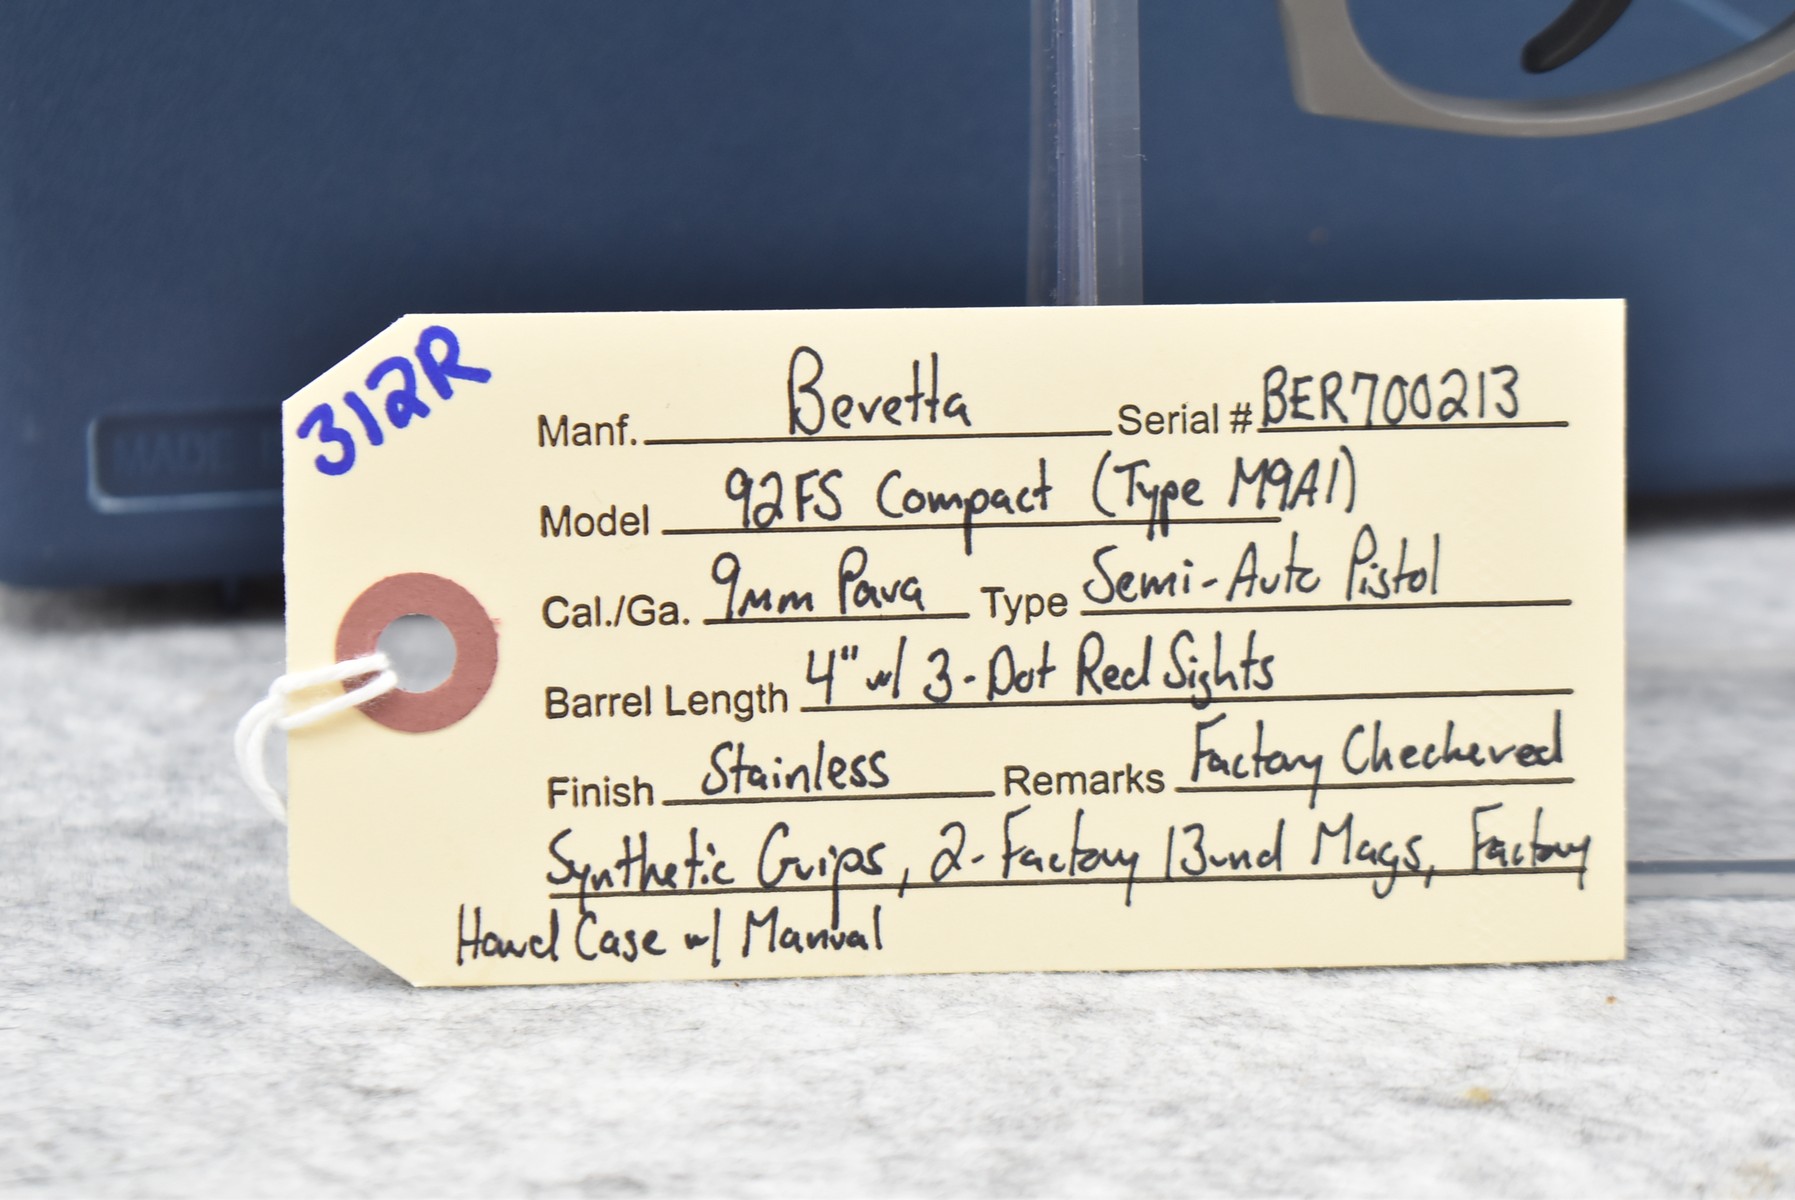 312R
Manf. Beretta Serial # BER700213
Model 92FS Compact (Type M9A1)
Cal./Ga. 9mm Para Type Semi-Auto Pistol
Barrel Length 4" w/ 3-Dot Red Sights
Finish Stainless Remarks Factory Checkered
Synthetic Grips, 2-Factory 13rnd Mags, Factory
Hard Case w/ Manual
MADE